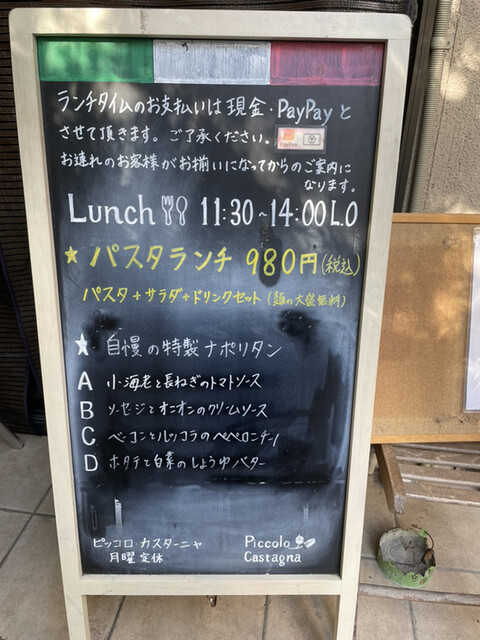 ランチタイムのお支払いは 現金・PayPayと
させて頂きます。ご了承ください。
PayPay
お連れのお客様がお揃いになってからのご案内に
なります。
Lunch 11:30~14:00 L.O
★ パスタランチ 980円(税込)
パスタ+サラダ+ドリンクセット (麺の大盛無料)
★ 自慢の特製ナポリタン
A 小海老と長ねぎのトマトソース
B ソーセージとオニオンのクリームソース
C ベーコンとルッコラのペペロンチーノ
D ホタテと白菜のしょうゆバター
ピッコロ・カスターニャ
月曜定休
Piccolo
Castagna